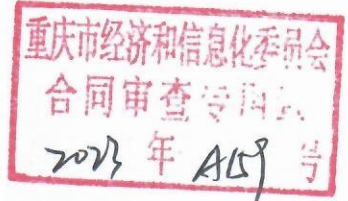 重庆市经济和信息化委员会
合同审查专用
2023 年 A159 号